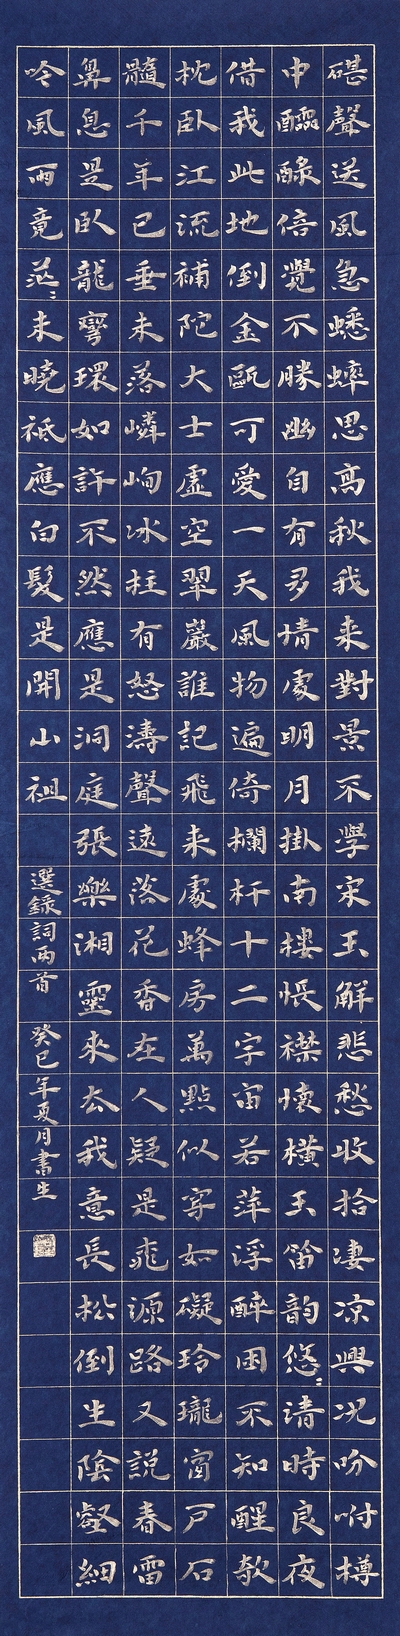 碪聲送風急蟋蟀思高秋我来對景不學宋玉解悲愁收拾凄凉興况吩咐樽
中醽醁倍覺不勝幽自有多情處明月掛南樓悵襟懷橫玉笛韻悠〻清時良夜
借我此地倒金甌可愛一天風物遍倚欄杆十二宇宙若萍浮醉困不知醒欹
枕臥江流補陀大士虛空翠巖誰記飛来處蜂房萬點似穿如礙玲瓏窗户石
髓千年已垂未落嶙峋冰柱有怒濤聲遠落花香在人疑是桃源路又說春雷
鼻息是臥龍彎環如許不然應是洞庭張樂湘靈來去我意長松倒生陰壑細
吟風雨竟茫〻未曉祗應白髮是開山祖
選錄詞兩首 癸巳年夏月書生